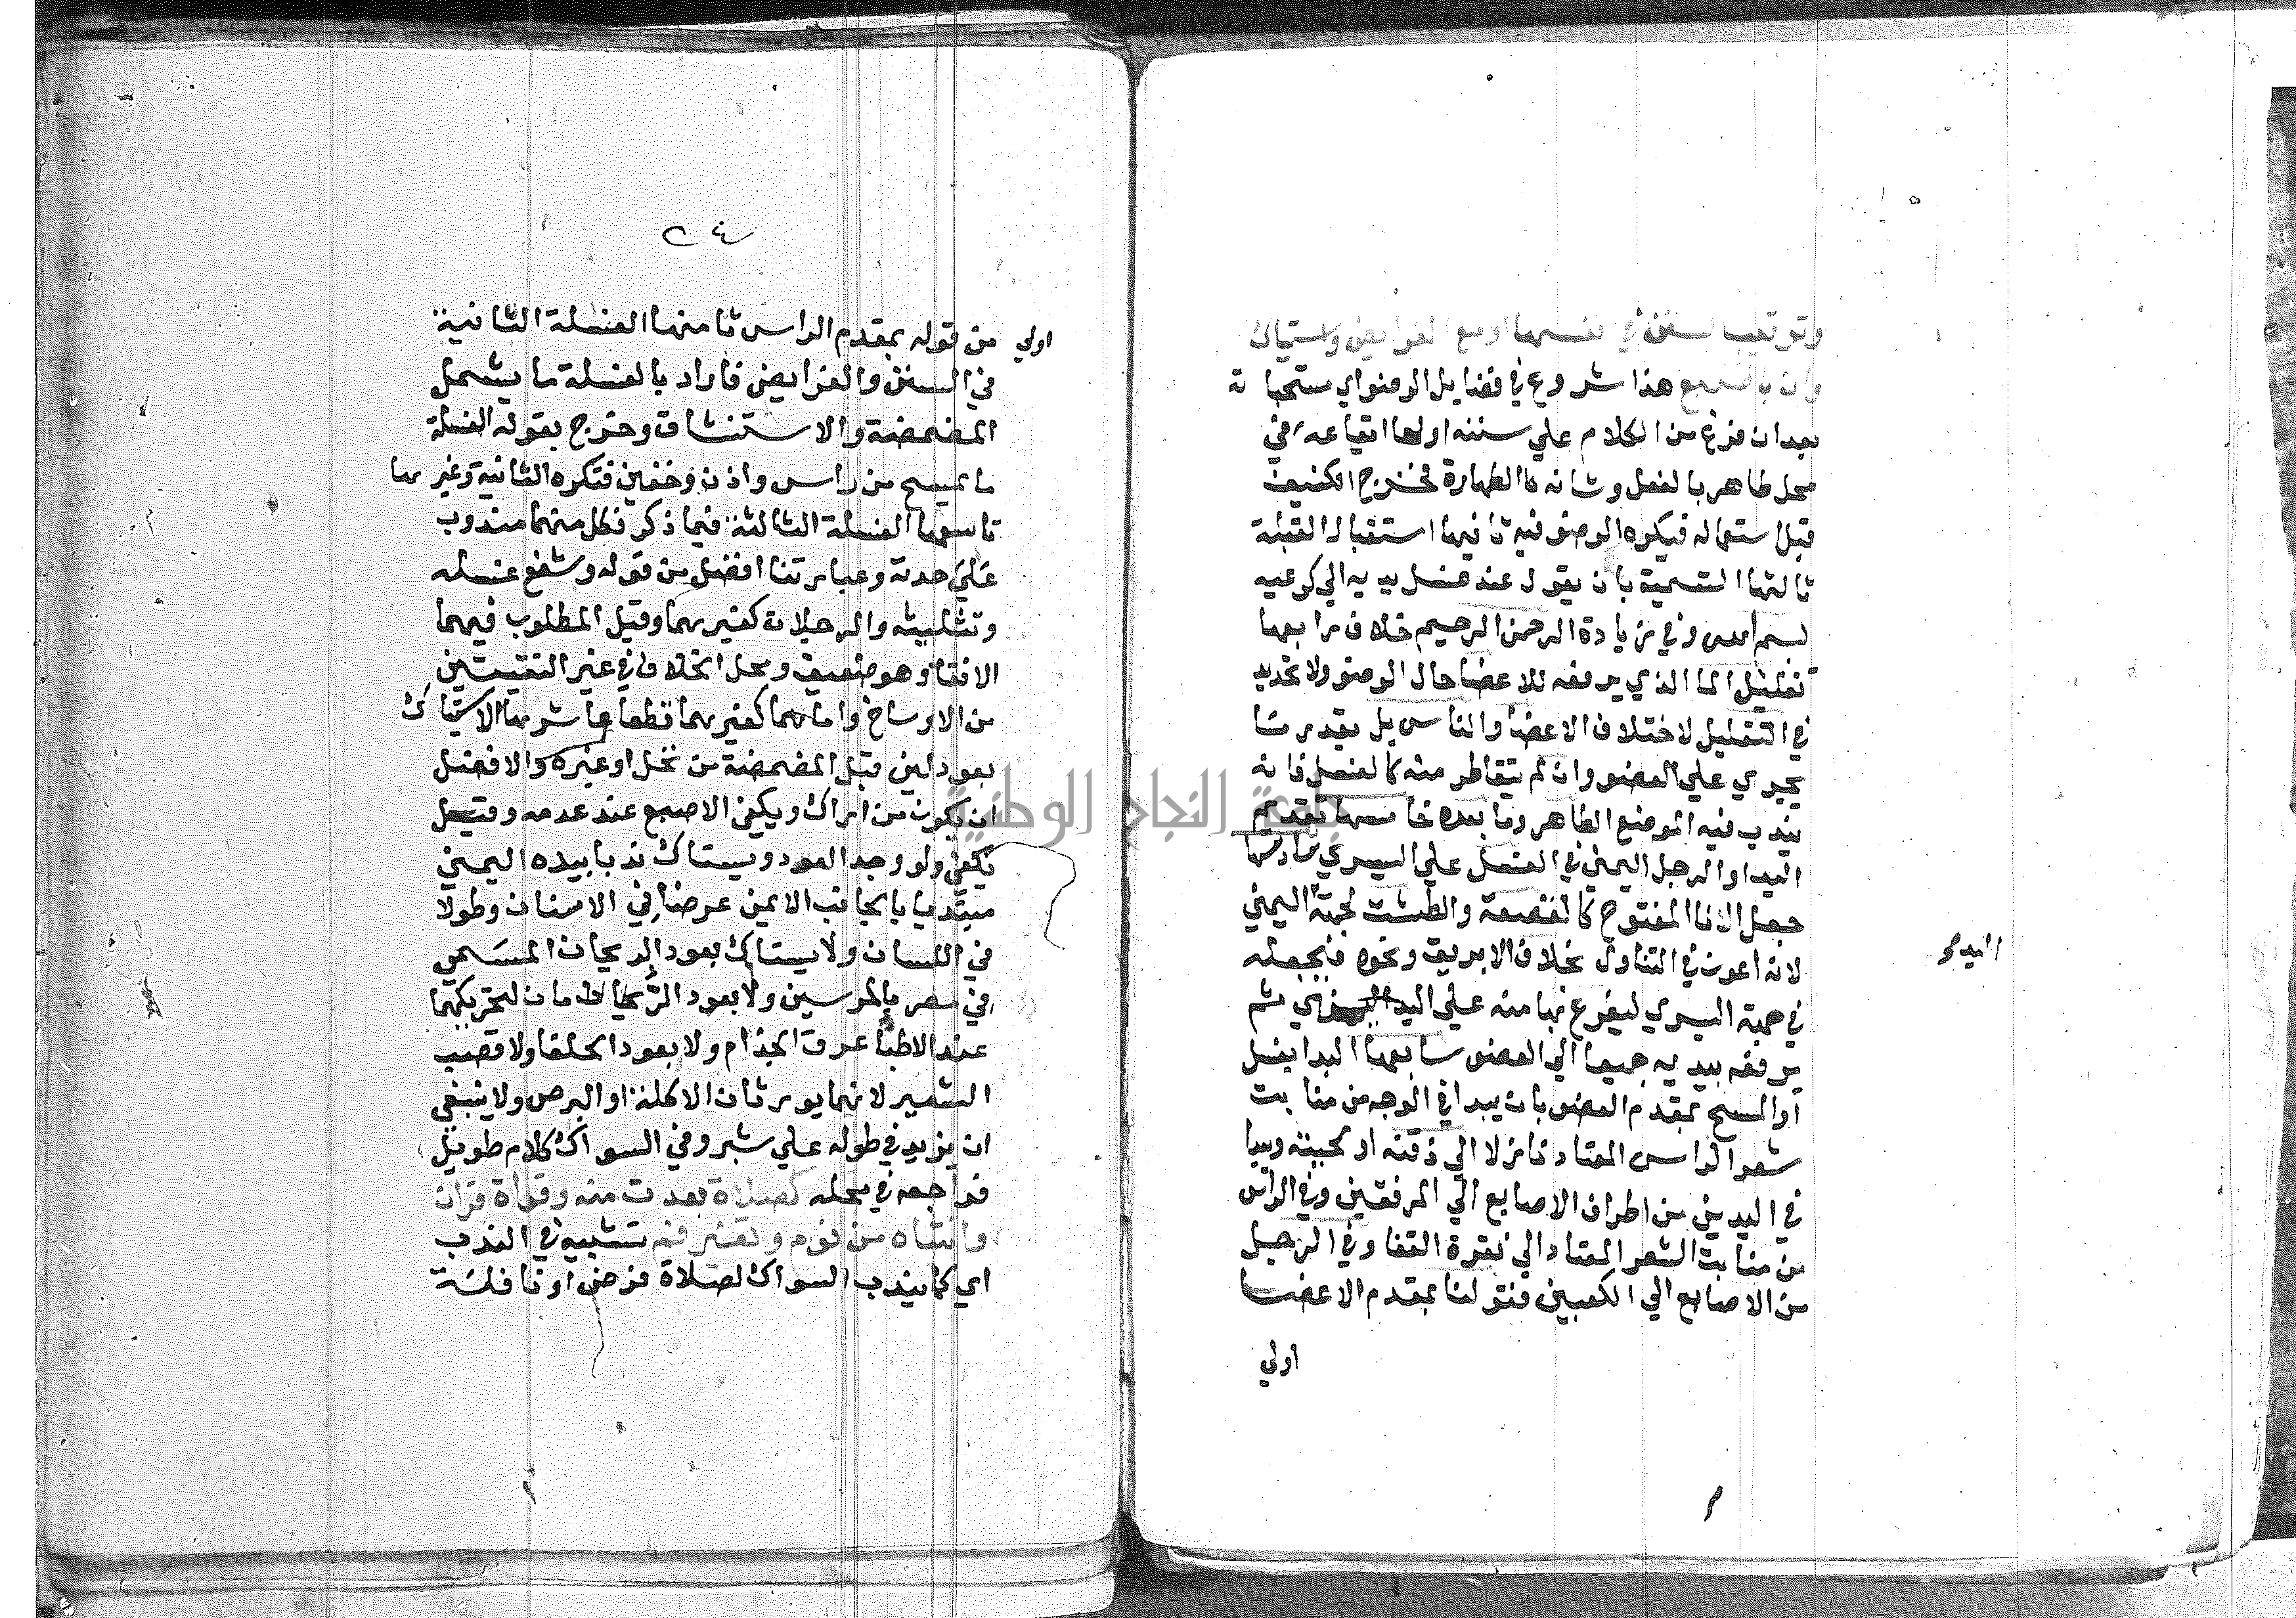 وترتيب السنن في نفسها او مع الفرايض واستياك
وان باصبع هذا شروع في فضايل الوضو اي مستحباته
بعد ان فرغ من الكلام علي سننه اولها ايقاعه في
محل طاهر بالفعل وشانه الطهارة فخرج الكنيف
قبل استعماله فيكره الوضو فيه ثانيها استقبال القبلة
ثالثها التسمية بان يقول عند غسل يديه الي كوعيه
بسم الله وفي زيادة الرحمن الرحيم خلاف رابعها
تقليل الما الذي يرفعه للاعضا حال الوضو ولا تحديد
في التقليل لاختلاف الاعضا والناس بل بقدر ما
يجري علي العضو وان لم يتقاطر منه كالغسل فانه
يندب فيه الموضع الطاهر وما بعده خامسها تقديم
اليد او الرجل اليمني في الغسل علي اليسري سادسها
جعل الانا المفتوح كالقصعة والطشت لجهة اليمني
لانه اعون في التناول بخلاف الابريق ونحوه فيجعله
في جهة اليسري ليفرغ بها منه علي اليد اليمني ثم
يرفعه بيديه جميعا الي العضو سابعها البدا بغسل
او المسح بمقدم العضو بان يبدا في الوجه من منابت
شعر الراس المعتاد نازلا الي ذقنه او لحيته ويبدا
في اليدين من اطراف الاصابع الي المرفقين وفي الراس
من منابت الشعر المعتاد الي نقرة القفا وفي الرجل
من الاصابع الي الكعبين فقولنا بمقدم الاعضا
اولي
٢٤
اولي من قوله بمقدم الراس ثامنها الغسلة الثانية
في السنن والفرايض فاراد بالغسلة ما يشمل
المضمضة والاستنشاق وخرج بقوله الغسلة
ما يمسح من راس واذن وخفين فتكره الثانية وغيرها
تاسعها الغسلة الثالثة فيما ذكر فكل منهما مندوب
علي حدته وعبارتنا افضل من قوله وشفع غسله
وتثليثه والرجلان كغيرهما وقيل المطلوب فيهما
الانقا وهو ضعيف ومحل الخلاف في غير النقيتين
من الاوساخ واما هما كغيرهما قطعا عاشرها الاستياك
بعود لين قبل المضمضة من نخل او غيره والافضل
ان يكون من اراك ويكفي الاصبع عند عدمه وقيل
يكفي ولو وجد العود ويستاك ندبا بيده اليمني
مبتديا بالجانب الايمن عرضا في الاسنان وطولا
في اللسان ولا يستاك بعود الريحان المسمي
في مصر بالمرسين ولا بعود الرمان لتحريكهما
عند الاطبا عرق الجذام ولا بعود الحلفا ولا قصب
الشعير لانهما يورثان الاكلة او البرص ولا ينبغي
ان يزيد في طوله علي شبر وفي السواك كلام طويل
فراجعه في محله كصلاة بعدت منه وقراة قران
وانتباه من نوم وتغير فم تشبيه في الندب
اي كما يندب السواك لصلاة فرض او نافلة
جامعة النجاح الوطنية